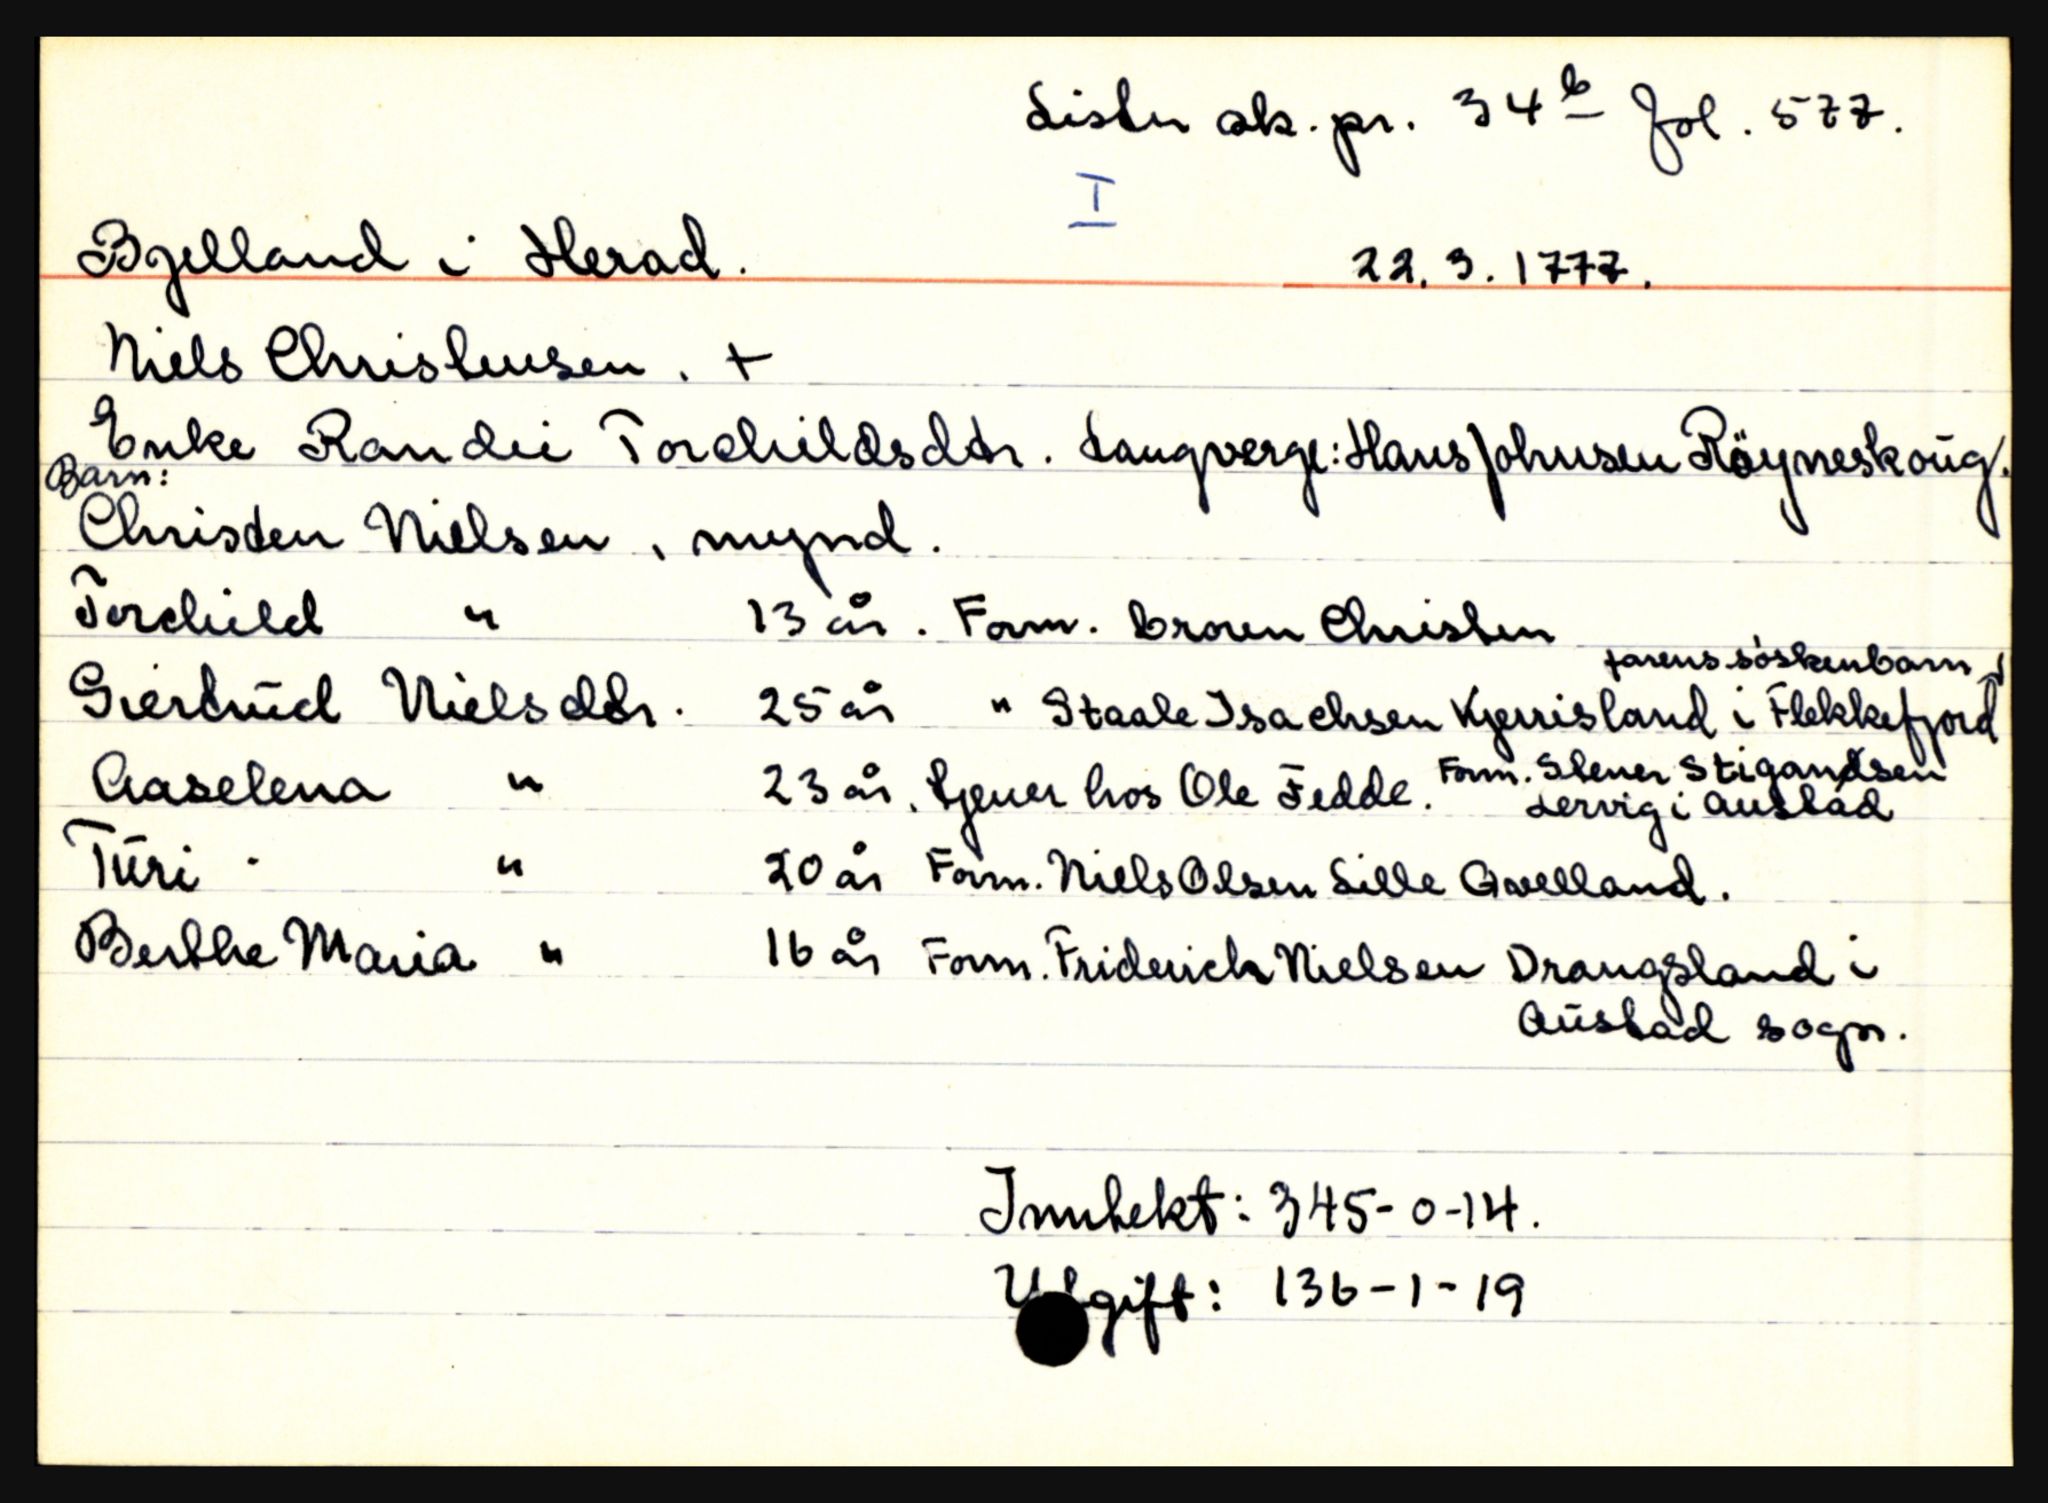 Lister sk. pr. 34b fol. 577.
I
Bjelland i Herad. 22.3.1777.
Niels Christensen. +
Enke Randii Torchildsdtr. Laugverge: Hans Johnsen Röyneskoug.
Barn:
Christen Nielsen, mynd.
Torchild " 13 år. Form. broren Christen
farens söskenbarn
Giertrud Nielsdtr. 25 år " Staale Isachsen Kjerrisland i Flekkefjord
Aaselena " 23 år. tjener hos Ole Fedde. Form. Stener Stigandsen
Lervig i Austad
Turi " 20 år Form. Niels Olsen Lille Qvelland.
Berthe Maria " 16 år Form. Friderich Nielsen Drangsland i
Austad sogn.
Inntekt: 345-0-14.
Utgift: 136-1-19